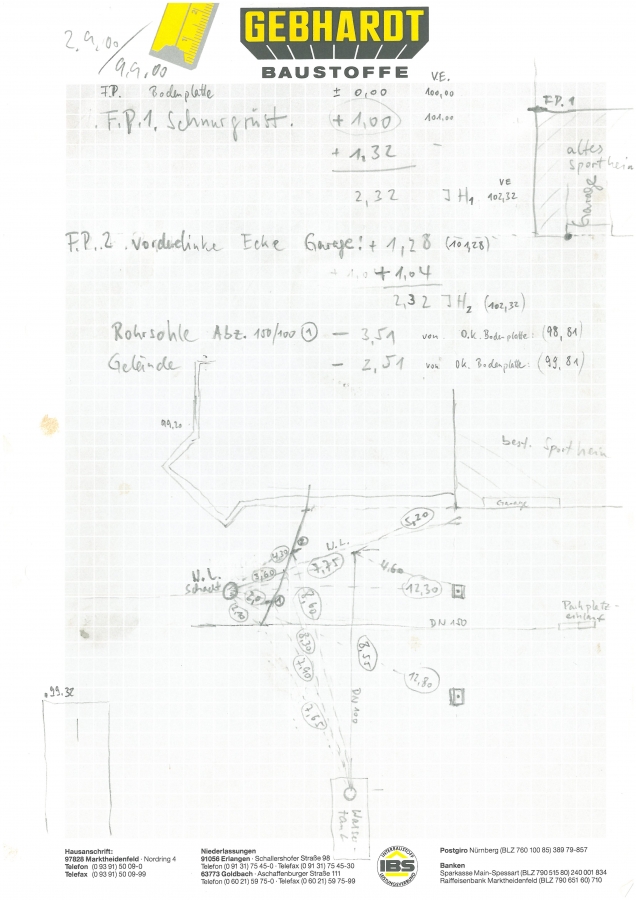 GEBHARDT
BAUSTOFFE
2.9.00/
9.9.00
V.E.
F.P. Bodenplatte ± 0,00 100,00
F.P.1. Schnurgrüst. + 1,00 101,00
+ 1,32 -
VE
2,32 H1 102,32
F.P.1
altes
Sportheim
Garage
F.P. 2 vorderlinke Ecke Garage: + 1,28 (101,28)
+ 1,04 + 1,04
2,32 H2 (102,32)
Rohrsohle Abz. 150/100 ① - 3,51 von O.k. Bodenplatte: (98,81)
Gelände - 2,51 von Ok. Bodenplatte: (99,81)
99,20
best. Sportheim
Garage
5,20
4,30
2
U.L.
3,60
7,75
4,60
U.L.
Schacht
12,30
2,0
1
2,60
Parkplatz-
einlauf
DN 150
3,30
7,90
8,55
12,80
99,32
7,65
DN 100
Wasser
tank
Hausanschrift:
97828 Marktheidenfeld · Nordring 4
Telefon (0 93 91) 50 09-0
Telefax (0 93 91) 50 09-99
Niederlassungen
91056 Erlangen · Schallershofer Straße 98
Telefon (0 91 31) 75 45-0 · Telefax (0 91 31) 75 45-30
63773 Goldbach · Aschaffenburger Straße 111
Telefon (0 60 21) 59 75-0 · Telefax (0 60 21) 59 75-99
IBS
Postgiro Nürnberg (BLZ 760 100 85) 389 79-857
Banken
Sparkasse Main-Spessart (BLZ 790 515 80) 240 001 834
Raiffeisenbank Marktheidenfeld (BLZ 790 651 60) 710